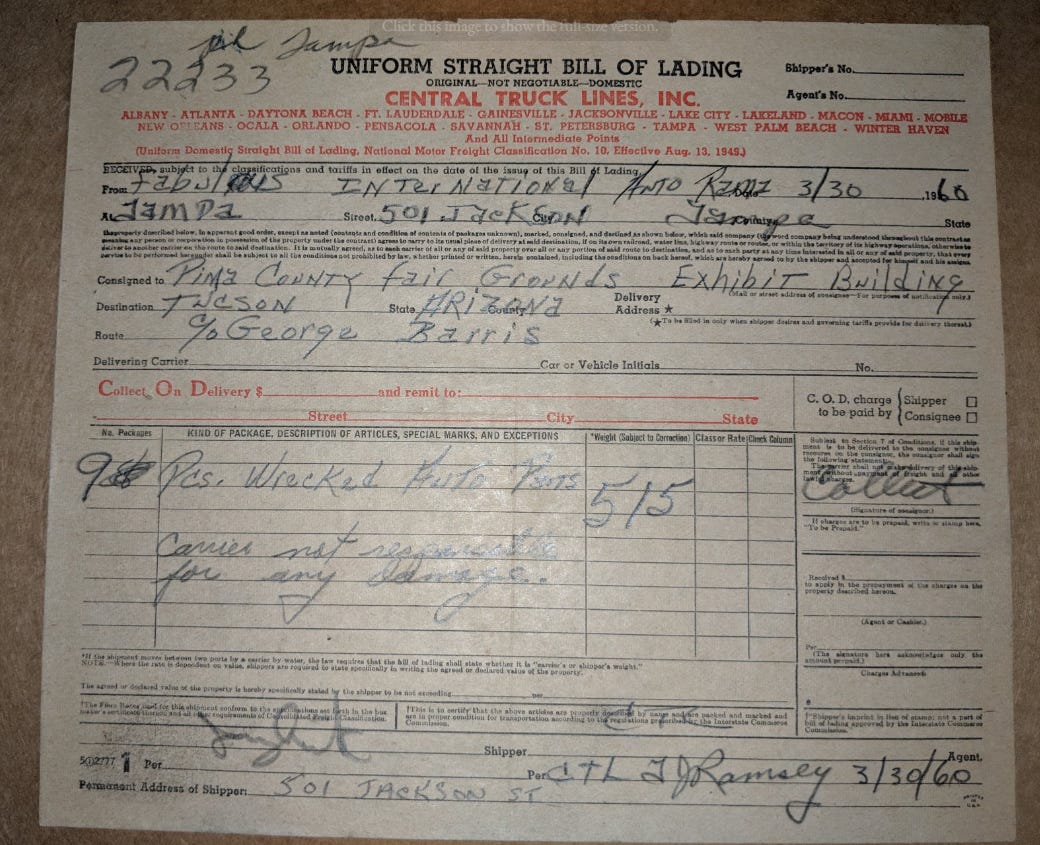 Click this image to show the full-size version.
Tampa
22233
UNIFORM STRAIGHT BILL OF LADING
ORIGINAL—NOT NEGOTIABLE—DOMESTIC
Shipper's No.
Agent's No.
CENTRAL TRUCK LINES, INC.
ALBANY - ATLANTA - DAYTONA BEACH - FT. LAUDERDALE - GAINESVILLE - JACKSONVILLE - LAKE CITY - LAKELAND - MACON - MIAMI - MOBILE
NEW ORLEANS - OCALA - ORLANDO - PENSACOLA - SAVANNAH - ST. PETERSBURG - TAMPA - WEST PALM BEACH - WINTER HAVEN
And All Intermediate Points
(Uniform Domestic Straight Bill of Lading, National Motor Freight Classification No. 10, Effective Aug. 13, 1949.)
RECEIVED, subject to the classifications and tariffs in effect on the date of the issue of this Bill of Lading,
From Fabulous International Auto Rama Date 3/30 1960
At Tampa Street, 501 Jackson City Tampa County State
the property described below, in apparent good order, except as noted (contents and condition of contents of packages unknown), marked, consigned, and destined as shown below, which said company (the word company being understood throughout this contract as
meaning any person or corporation in possession of the property under the contract) agrees to carry to its usual place of delivery at said destination, if on its own railroad, water line, highway route or routes, or within the territory of its highway operations, otherwise to
deliver to another carrier on the route to said destination. It is mutually agreed, as to each carrier of all or any of said property over all or any portion of said route to destination, and as to each party at any time interested in all or any of said property, that every
service to be performed hereunder shall be subject to all the conditions not prohibited by law, whether printed or written, herein contained, including the conditions on back hereof, which are hereby agreed to by the shipper and accepted for himself and his assigns.
Consigned to Pima County fair Grounds Exhibit Building
(Mail or street address of consignee—For purposes of notification only.)
Destination Tucson State Arizona County Delivery Address ★
(★To be filled in only when shipper desires and governing tariffs provide for delivery thereat.)
Route c/o George Barris
Delivering Carrier Car or Vehicle Initials No.
Collect On Delivery $ and remit to:
Street City State
C. O. D. charge to be paid by { Shipper ☐ Consignee ☐
No. Packages KIND OF PACKAGE, DESCRIPTION OF ARTICLES, SPECIAL MARKS, AND EXCEPTIONS *Weight (Subject to Correction) Class or Rate Check Column
9 Pcs. Wrecked Auto Parts 515
Carrier not responsible
for any damage.
Subject to Section 7 of Conditions, if this shipment is to be delivered to the consignee without recourse on the consignor, the consignor shall sign the following statement:
The carrier shall not make delivery of this shipment without payment of freight and all other lawful charges.
Collect
(Signature of consignor.)
If charges are to be prepaid, write or stamp here, "To be Prepaid."
Received $
to apply in the prepayment of the charges on the property described hereon.
(Agent or Cashier.)
Per
(The signature here acknowledges only the amount prepaid.)
Charges Advanced:
$
*If the shipment moves between two ports by a carrier by water, the law requires that the bill of lading shall state whether it is "carrier's or shipper's weight."
NOTE.—Where the rate is dependent on value, shippers are required to state specifically in writing the agreed or declared value of the property.
The agreed or declared value of the property is hereby specifically stated by the shipper to be not exceeding per
†The Fibre Boxes used for this shipment conform to the specifications set forth in the box maker's certificate thereon and all other requirements of Consolidated Freight Classification.
†This is to certify that the above articles are properly described by name and are packed and marked and are in proper condition for transportation according to the regulations prescribed by the Interstate Commerce Commission.
†Shipper's imprint in lieu of stamp; not a part of bill of lading approved by the Interstate Commerce Commission.
Shipper Agent,
1 Per Per CTL T J Ramsey 3/30/60
Permanent Address of Shipper: 501 JACKSON ST
PRINTED IN U.S.A.